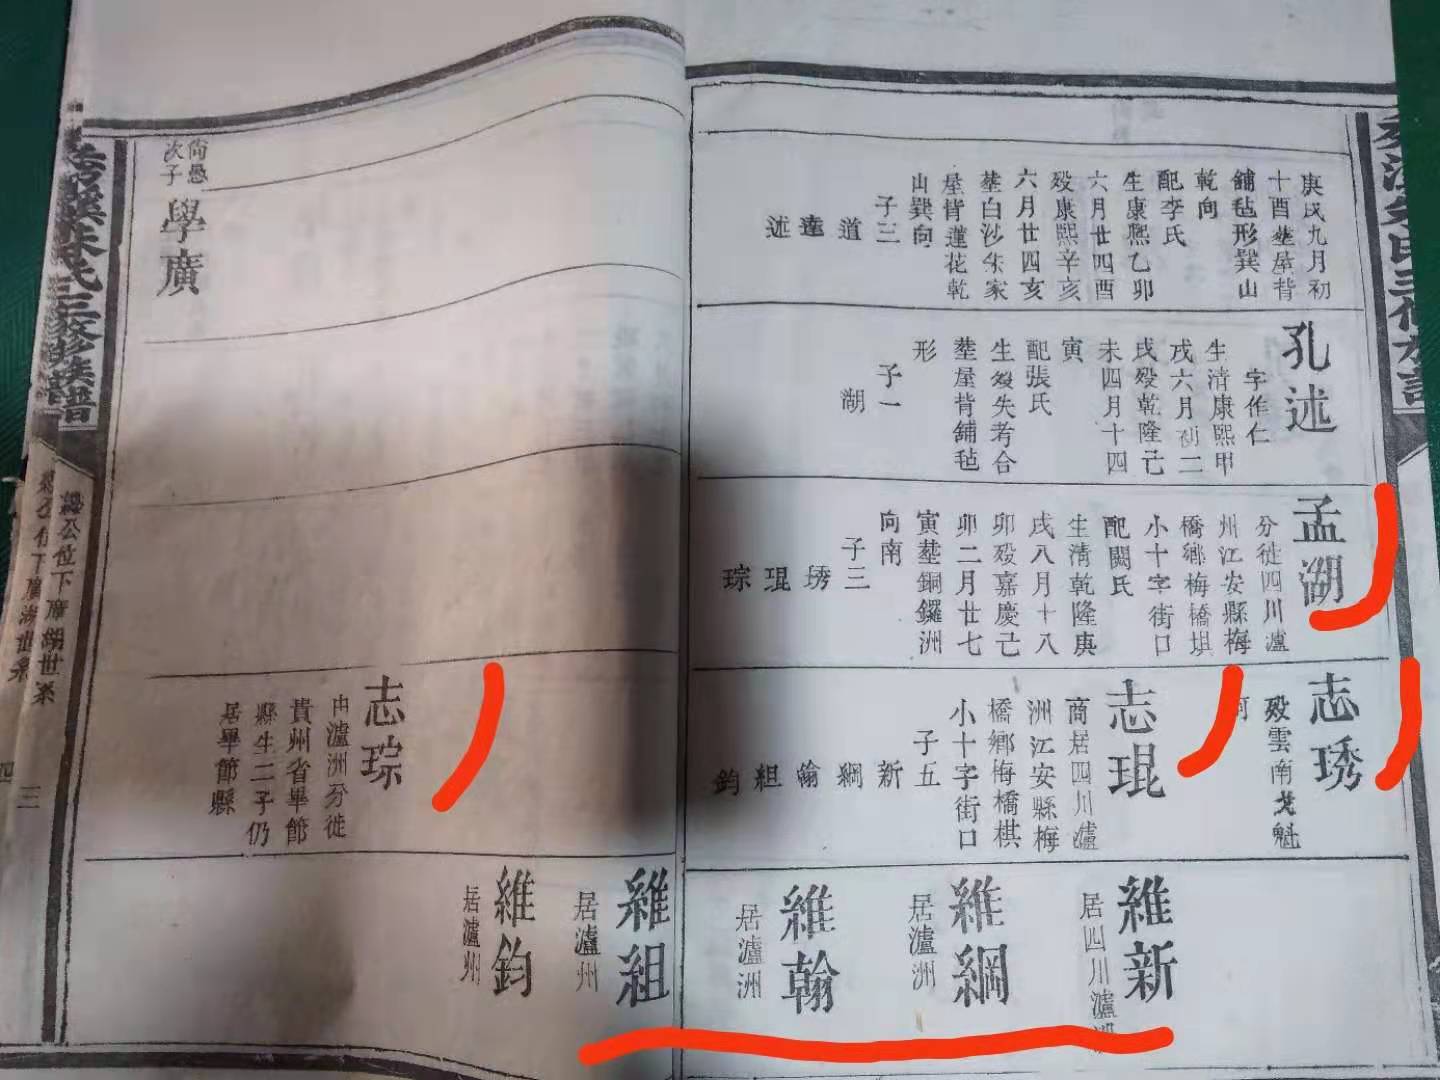 庚戌九月初
十酉塟屋背
舖毡形巽山
乾向
配李氏
生康熈乙卯
六月廿四酉
殁康熙辛亥
六月廿四亥
塟白沙朱家
屋背蓮花乾
山巽向
子三
道
達
述
孔述
字作仁
生清康熙甲
戌六月初二
戌殁乾隆己
未四月十四
寅
配張氏
生殁失考合
塟屋背舖毡
形
子一
湖
孟湖
分徙四川瀘
州江安縣梅
橋鄉梅橋埧
小十字街口
配闕氏
生清乾隆庚
戌八月十八
卯殁嘉慶己
卯二月廿七
寅塟銅鑼洲
向南
子三
琇
琨
琮
志琇
殁雲南戈魁
河
志琨
商居四川瀘
洲江安縣梅
橋鄉梅橋棋
小十字街口
子五
新
綱
翰
組
鈞
維新
居四川瀘
維綱
居瀘洲
維翰
居瀘洲
維組
居瀘州
維鈞
居瀘州
志琮
由瀘洲分徙
貴州省畢節
縣生二子仍
居畢節縣
尙愚
次子
學廣
朱氏三修族譜
公位下廣湖世系
三
四